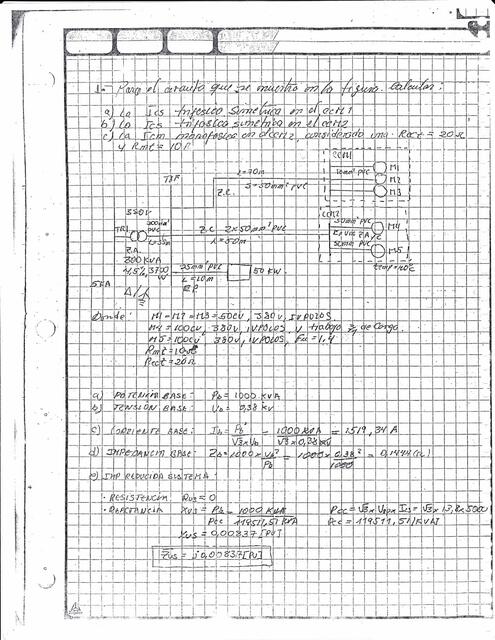 1.- Para el circuito que se muestra en la figura. Calcular:
a) La Ics trifasica simetrica en el ccm1
b) La Ics trifasica simetrica en el ccm2
c) La Icm monofasica en el ccm2, considerando una Rect = 20Ω
y Rmt = 10Ω
TDF
L=70m
Z.C. S=50mm² PVC
CCM1
10mm² PVC
M1
M2
M3
380V
TR1
PVC
L=35m
Z.C 2x50mm² PVC
L=50m
CCM2
50mm² PVC
M4
50mm² PVC
M5
temp=40°C
Z.A.
800KVA
4,5%, 3700
W
25mm² PVC
L=10m
50 KW.
5KA
Donde: M1=M2=M3=50CV, 380V, IV POLOS
M4=100CV, 380V, IV POLOS, y trabajo de Carga
M5=100CV 380V, IV POLOS, Fu=1,4
Rmt=10Ω
Rect=20Ω
a) POTENCIA BASE: Pb = 1000 KVA
b) TENSION BASE: Vb = 0,38 KV
c) CORRIENTE BASE: Ib = Pb / √3 x Vb = 1000 KVA / √3 x 0,38 KV = 1519,34 A
d) IMPEDANCIA BASE: Zb = 1000 x Vb² / Pb = 1000 x 0,38² / 1000 = 0,1444 (Ω)
e) IMP REDUCIDA SISTEMA:
· RESISTENCIA Rus = 0
· REACTANCIA Xus = Pb / Pcc = 1000 KVA / 119511,51 KVA
Pcc = √3 x Vnp x Ics = √3 x 13,8 x 5000
Pcc = 119511,51 [KVA]
Xus = 0,00837 [PU]
Zus = j0,00837 [PU]